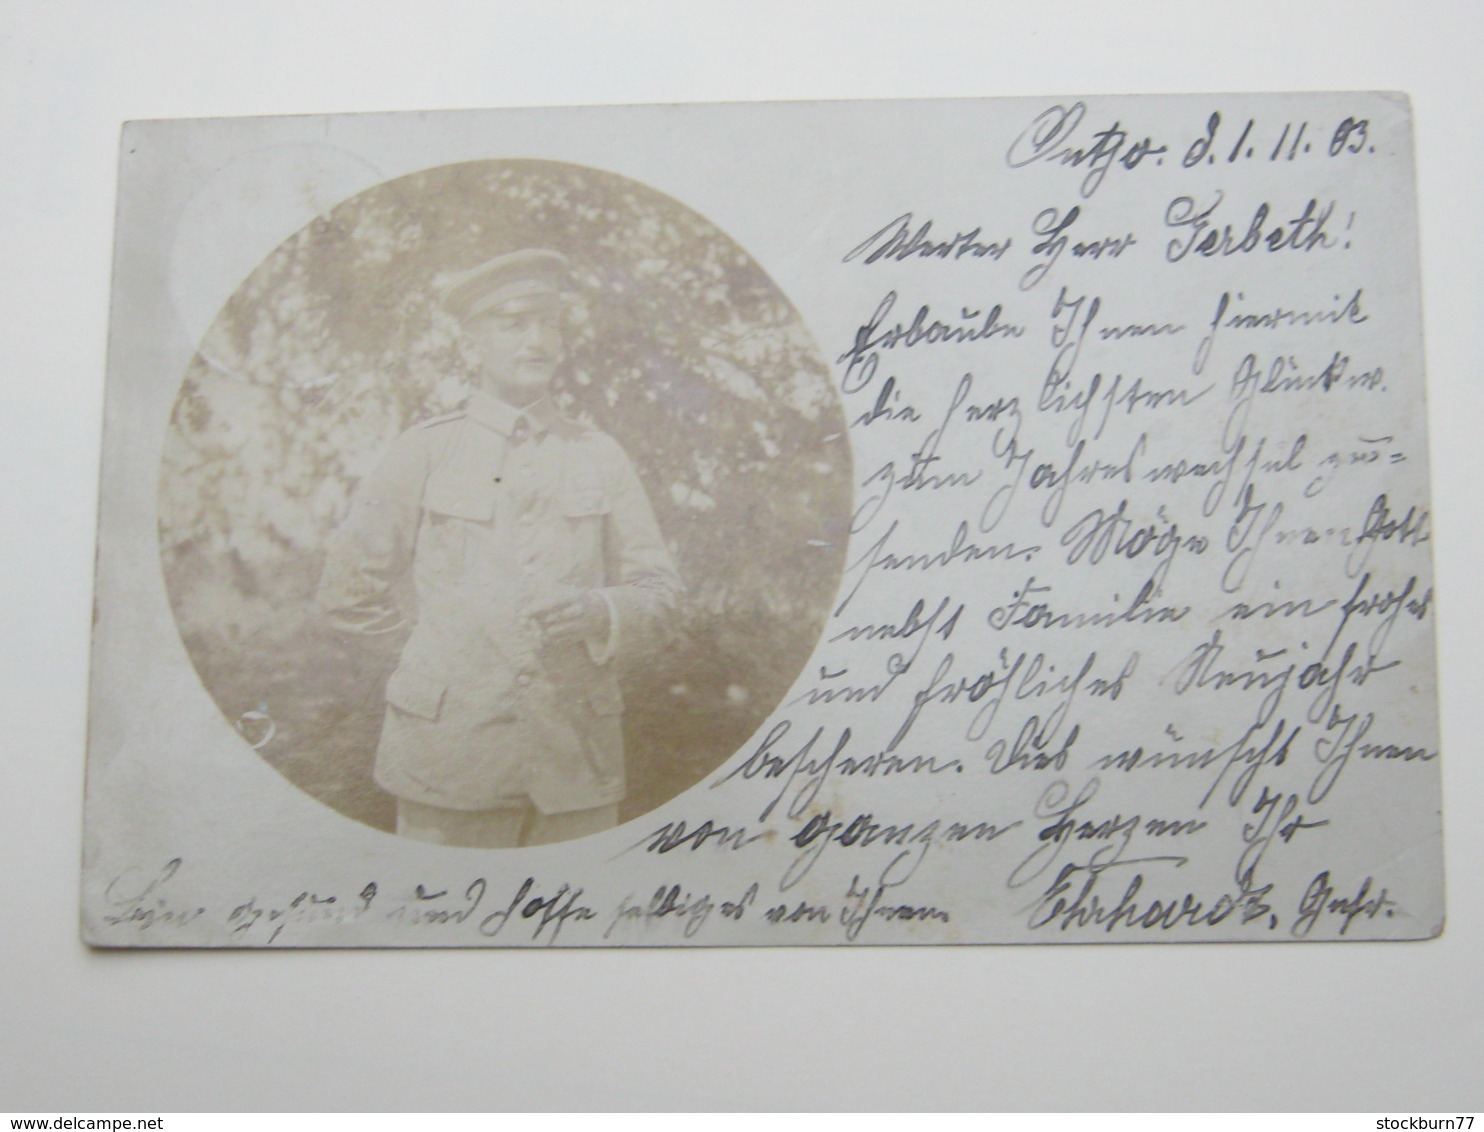 Outjo. d. 1. 11. 03.
Werter Herr Gerbeth!
Erlaube Ihnen hiermit
die herzlichsten Glückw.
zum Jahreswechsel zu=
senden. Möge Ihnen Gott
nebst Familie ein frohes
und fröhliches Neujahr
bescheren. Dies wünscht Ihnen
von ganzen Herzen Ihr
Ehrhardt, Gefr.
Bin gesund und hoffe selbiges von Ihnen.
stockburn77
delcampe.net